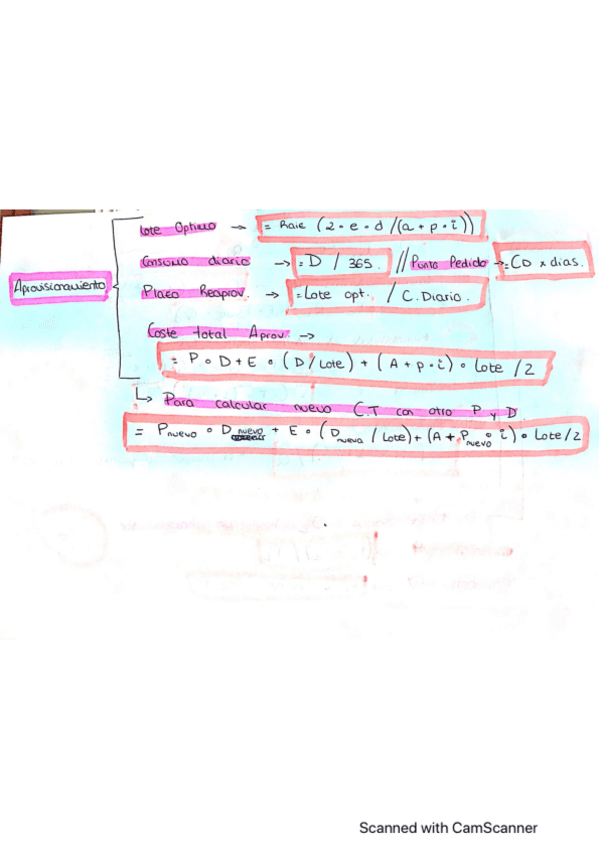 Lote Optimo → = Raíz (2 · e · d /(a + p · i))
Consumo diario → = D / 365. // Punto Pedido → = CD x dias.
Aprovisionamiento
Plazo Reaprov. → = Lote opt. / C. Diario.
Coste total Aprov. →
= P · D + E · (D / Lote) + (A + p · i) · Lote / 2
↳ Para calcular nuevo C.T con otro P y D.
= Pnuevo · Dnuevo + E · (Dnueva / Lote) + (A + Pnuevo · i) · Lote / 2
Scanned with CamScanner